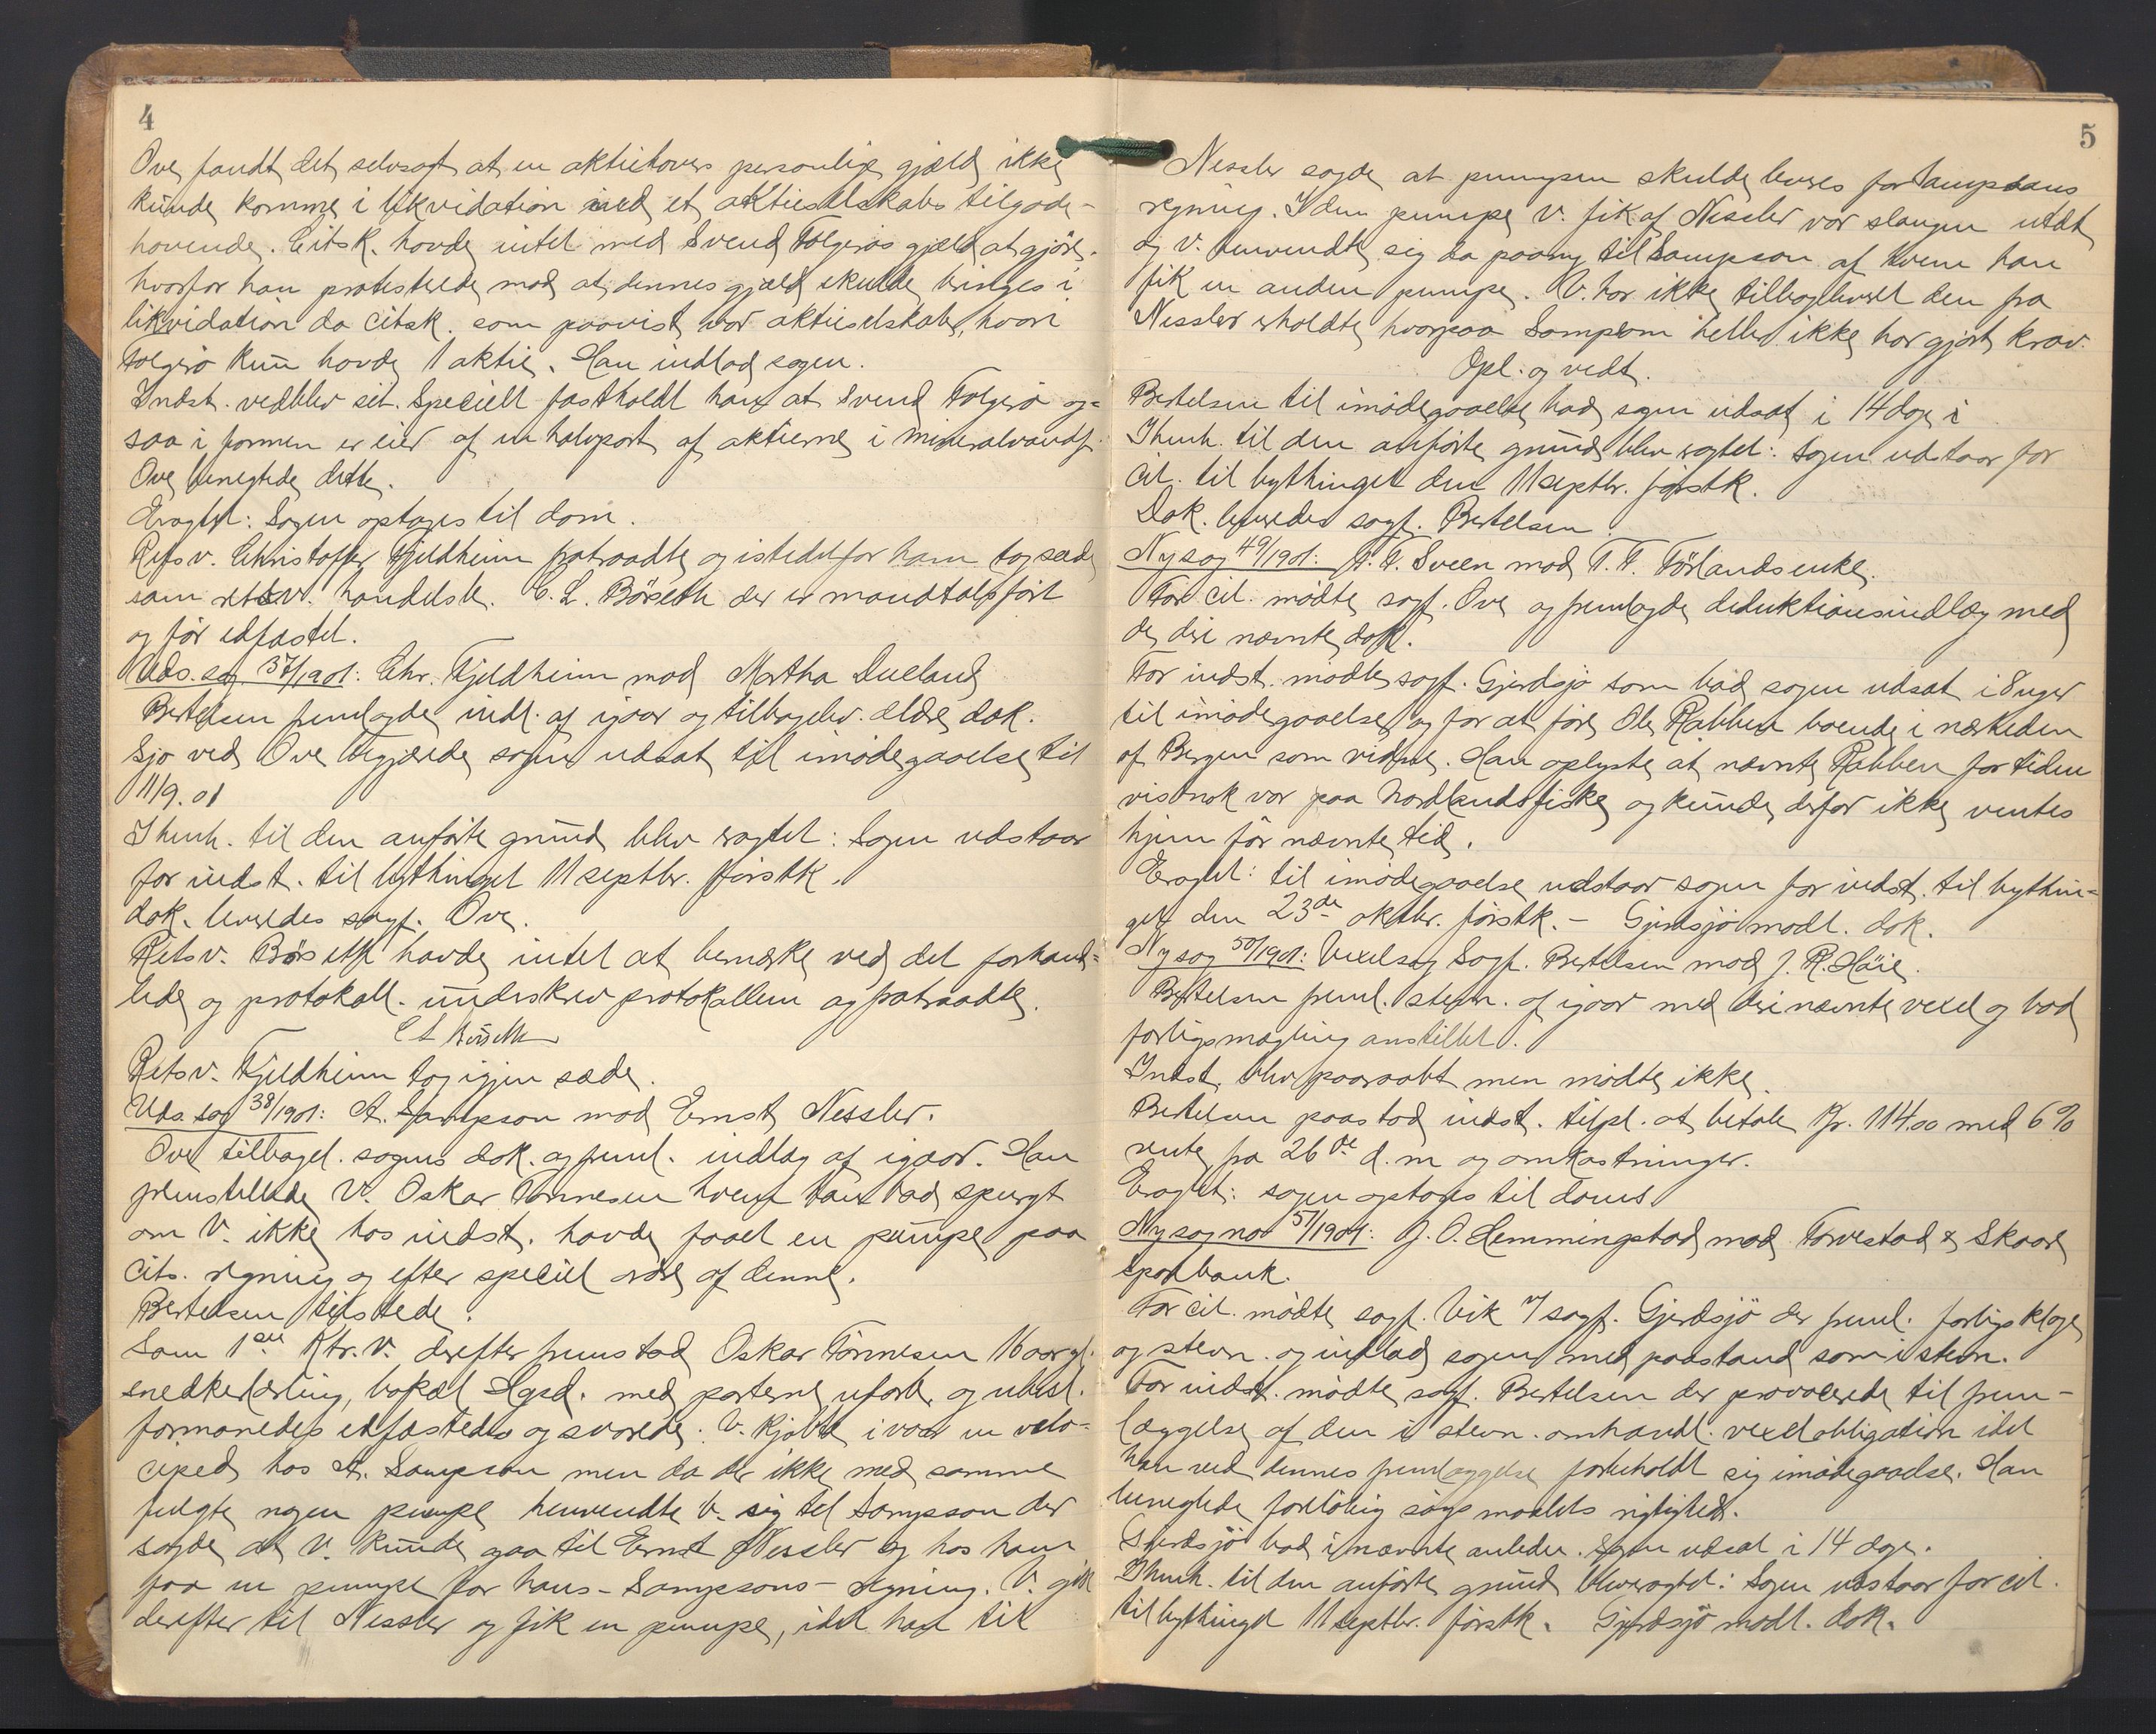 4
Ove fandt det selvsagt at en aktietovers personlige gjæld ikke
kunde komme i likvidation med et aktieselskabs tilgode-
havende. Citsk. havde intet med Svend Folgerøs gjæld at gjøre,
hvorfor han protesterede mod at dennes gjæld skulde bringes i
likvidation da citsk. som paavist var aktieselskabet, hvori
Folgerø kun havde 1 aktie. Han indlod sagen.
Indst. vedblev sit. Specielt fastholdt han at Svend Folgerø og-
saa i formen er eier af en halvpart af aktierne i mineralvandf.
Ove benegtede dette.
Eragtet: Sagen optages til dom.
Retsv. Christoffer Fjeldheim fratraadte og istedetfor ham tog sæde
som retsv. handelsb. C. L. Börseth der er mandtalsfört
og för edfæstet.
Uds. sag 37/1901: Chr. Fjeldheim mod Martha Dueland
Bertelsen fremlagde indl. af igaar og tilbagelev. ældre dok.
Sjo ved Ove begjærede sagen udsat til imödegaaelse til
11/9.01
I henh. til den anförte grund blev eragtet: Sagen udstaar
for indst. til bythinget 11 septbr. förstk.
dok. leveredes sagf. Ove.
Retsv. Börseth havde intet at bemærke ved det forhand-
lede og protokoll. underskrev protokollen og fratraadte.
C L Börseth
Retsv. Fjeldheim tog igjen sæde.
Uds. sag 38/1901: A. Sampson mod Ernst Nessler.
Ove tilbagel. sagens dok. og freml. indlæg af igaar. Han
fremstillede V. Oskar Tönnesen hvem han bad spurgt
om V. ikke hos indst. havde faaet en pumpe paa
Cits. regning og efter speciel ordre af denne.
Bertelsen tilstede.
Som 1ste Ktr. V. derefter fremstod Oskar Tönnesen 16 aar gl.
snedkerlærling, bopæl Hgsd. med parterne uforb. og ubesl.
formanedes edfæstedes og svarede: V. kjöbte i vaar en velo-
ciped hos A. Sampson men da der ikke med samme
fulgte nogen pumpe henvendte V. sig til Sampson der
sagde at V. kunde gaa til Ernst Nessler og hos ham
faa en pumpe for hans - Sampsons - regning. V. gik
derefter til Nessler og fik en pumpe, idet han til
5
Nessler sagde at pumpen skulde leveres for Sampsons
regning. I den pumpe V. fik af Nessler var slangen utæt
og V. henvendte sig da paany til Sampson af hvem han
fik en anden pumpe. V. har ikke tilbageleveret den fra
Nessler erholdte, hvorpaa Sampson heller ikke har gjort krav.
Opl. og vedt.
Bertelsen til imödegaaelse bad sagen udsat i 14 dage i
I henh. til den anförte grund blev eragtet: Sagen udstaar for
Cit. til bythinget den 11 septbr. förstk.
Dok. leveredes sagf. Bertelsen.
Ny sag 49/1901: A. T. Sveen mod T. T. Förlands enke.
For cit. mödte sagf. Ove og fremlagde deduktionsindlæg med
de deri nævnte dok.
For indst. mödte sagf. Gjerdsjö som bad sagen udsat i 8 uger
til imödegaaelse og for at före Ole Rabben boende i nærheden
af Bergen som vidne. Han oplyste at nævnte Rabben for tiden
vistnok var paa Nordlandsfiske og kunde derfor ikke ventes
hjem för nævnte tid.
Eragtet: til imödegaaelse udstaar sagen for indst. til bythin-
get den 23de oktbr. förstk. - Gjerdsjö modt. dok.
Ny sag 50/1901: Vexelsag Sagf. Bertelsen mod J. R. Höie.
Bertelsen freml. stevn. af igaar med deri nævnte vexel og bad
forligsmægling anstillet.
Indst. blev paaraabt men mödte ikke.
Bertelsen paastod indst. tilpl. at betale Kr. 114.00 med 6%
rente fra 26de d. m og omkostninger.
Eragtet: sagen optages til doms
Ny sag no 51/1901: J. O. Hemmingstad mod Torvestad & Skaare
sparebank.
For cit. mödte sagf. Vik f/ sagf. Gjerdsjö der freml. forligsklage
og stevn. og indlod sagen med paastand som i stevn.
For indst. mödte sagf. Bertelsen der provocerede til frem-
læggelse af den i stevn. omhandl. vexelobligation idet
han ved dennes fremlæggelse forbeholdt sig imödegaaelse. Han
benegtede forelöbig sögsmaalets rigtighed.
Gjerdsjö bad i nævnte anleden. sagen udsat i 14 dage.
I henh. til den anförte grund blev eragtet: Sagen udstaar for cit.
til bythinget 11 septbr. förstk. Gjerdsjö modt. dok.